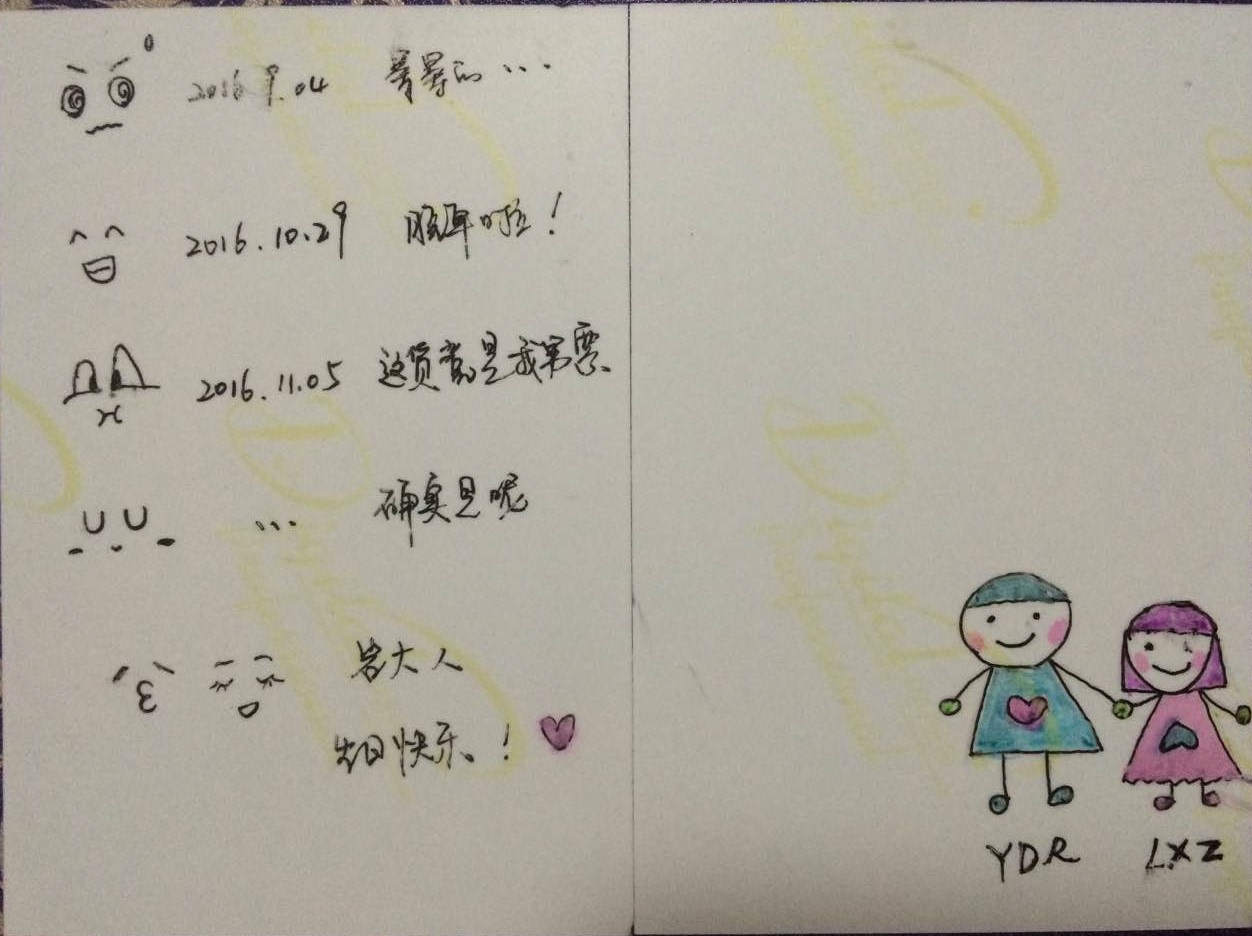 2016.9.04 晕晕的...
2016.10.29 脱单啦！
2016.11.05 这货就是我男票、
... 确实是呢
岩大人
生日快乐、！
YDR LXZ